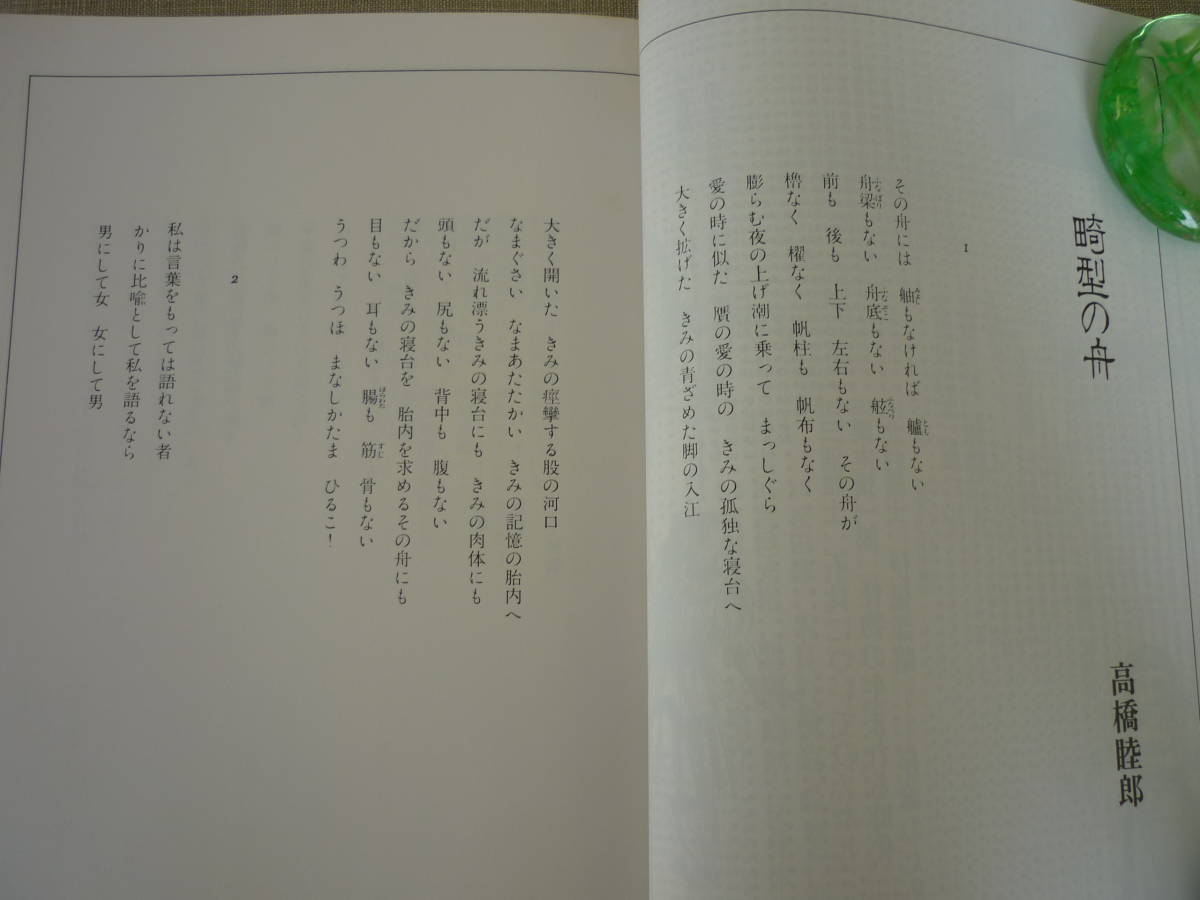 畸型の舟
高橋睦郎
1
その舟には　舳もなければ　艫もない
舟梁もない　舟底もない　舷もない
前も　後も　上下　左右もない　その舟が
櫓なく　櫂なく　帆柱も　帆布もなく
膨らむ夜の上げ潮に乗って　まっしぐら
愛の時に似た　贋の愛の時の　きみの孤独な寝台へ
大きく拡げた　きみの青ざめた脚の入江
大きく開いた　きみの痙攣する股の河口
なまぐさい　なまあたたかい　きみの記憶の胎内へ
だが　流れ漂うきみの寝台にも　きみの肉体にも
頭もない　尻もない　背中も　腹もない
だから　きみの寝台を　胎内を求めるその舟にも
目もない　耳もない　腸も　筋　骨もない
うつわ　うつほ　まなしかたま　ひるこ！
2
私は言葉をもっては語れない者
かりに比喩として私を語るなら
男にして女　女にして男